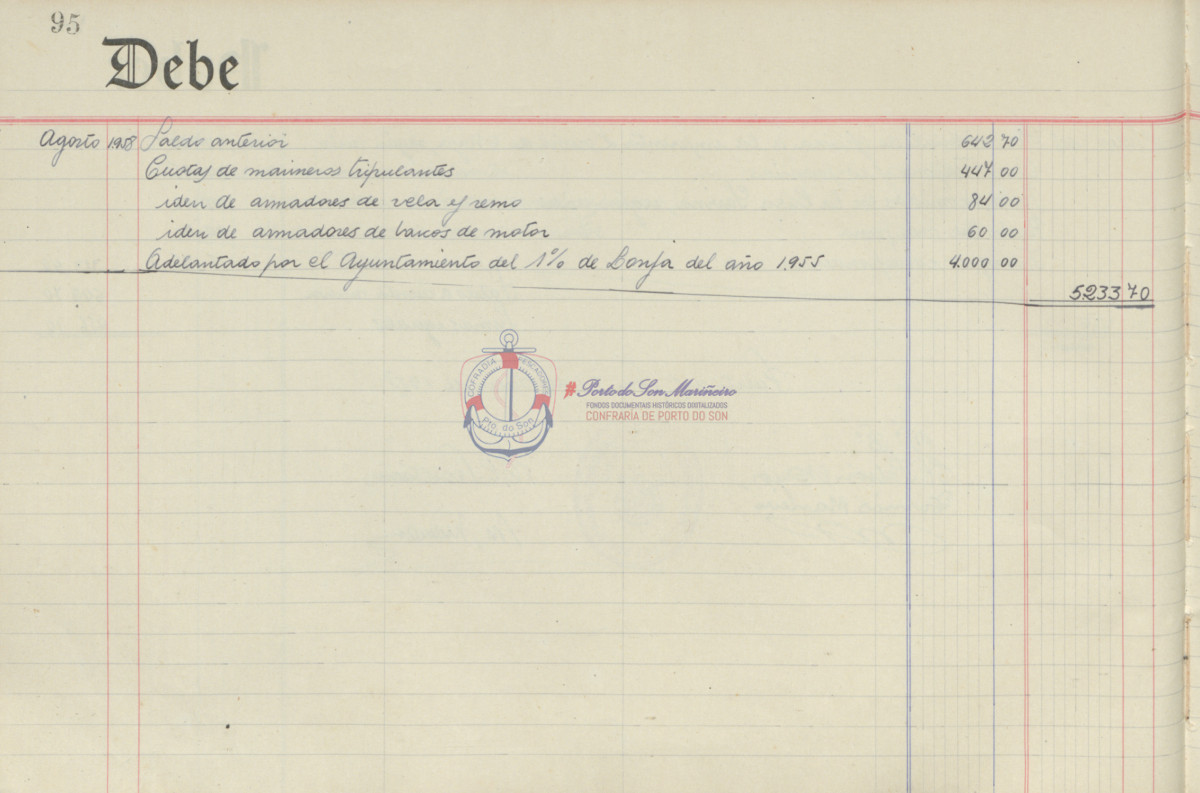 95
Debe
Agosto 1958 Saldo anterior 642 70
Cuotas de marineros tripulantes 447 00
iden de armadores de vela y remo 84 00
iden de armadores de barcos de motor 60 00
Adelantado por el Ayuntamiento del 1% de Lonja del año 1.955 4.000 00
5233 70
COFRADIA PESCADORES
Pto. do Son
#Porto do Son Mariñeiro
FONDOS DOCUMENTAIS HISTÓRICOS DIXITALIZADOS
CONFRARÍA DE PORTO DO SON